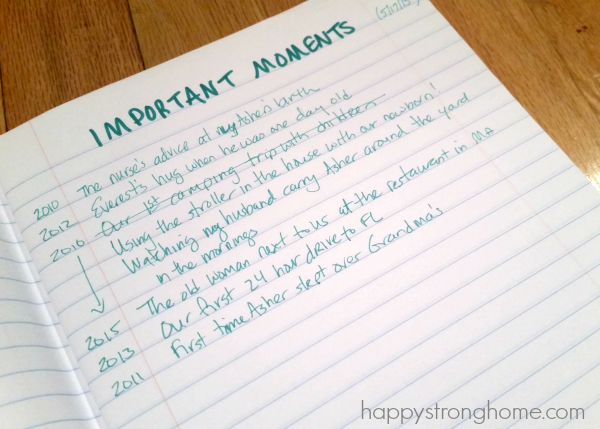 IMPORTANT MOMENTS
2010 The nurse's advice at my Asher's birth
2012 Everest's hug when he was one day old
2010 Our 1st camping trip with children
Using the stroller in the house with our newborn!
Watching my husband carry Asher around the yard
in the mornings
2015 The old woman next to us at the restaurant in MA
2013 Our first 24 hour drive to FL
2011 First time Asher slept over Grandma's
happystronghome.com